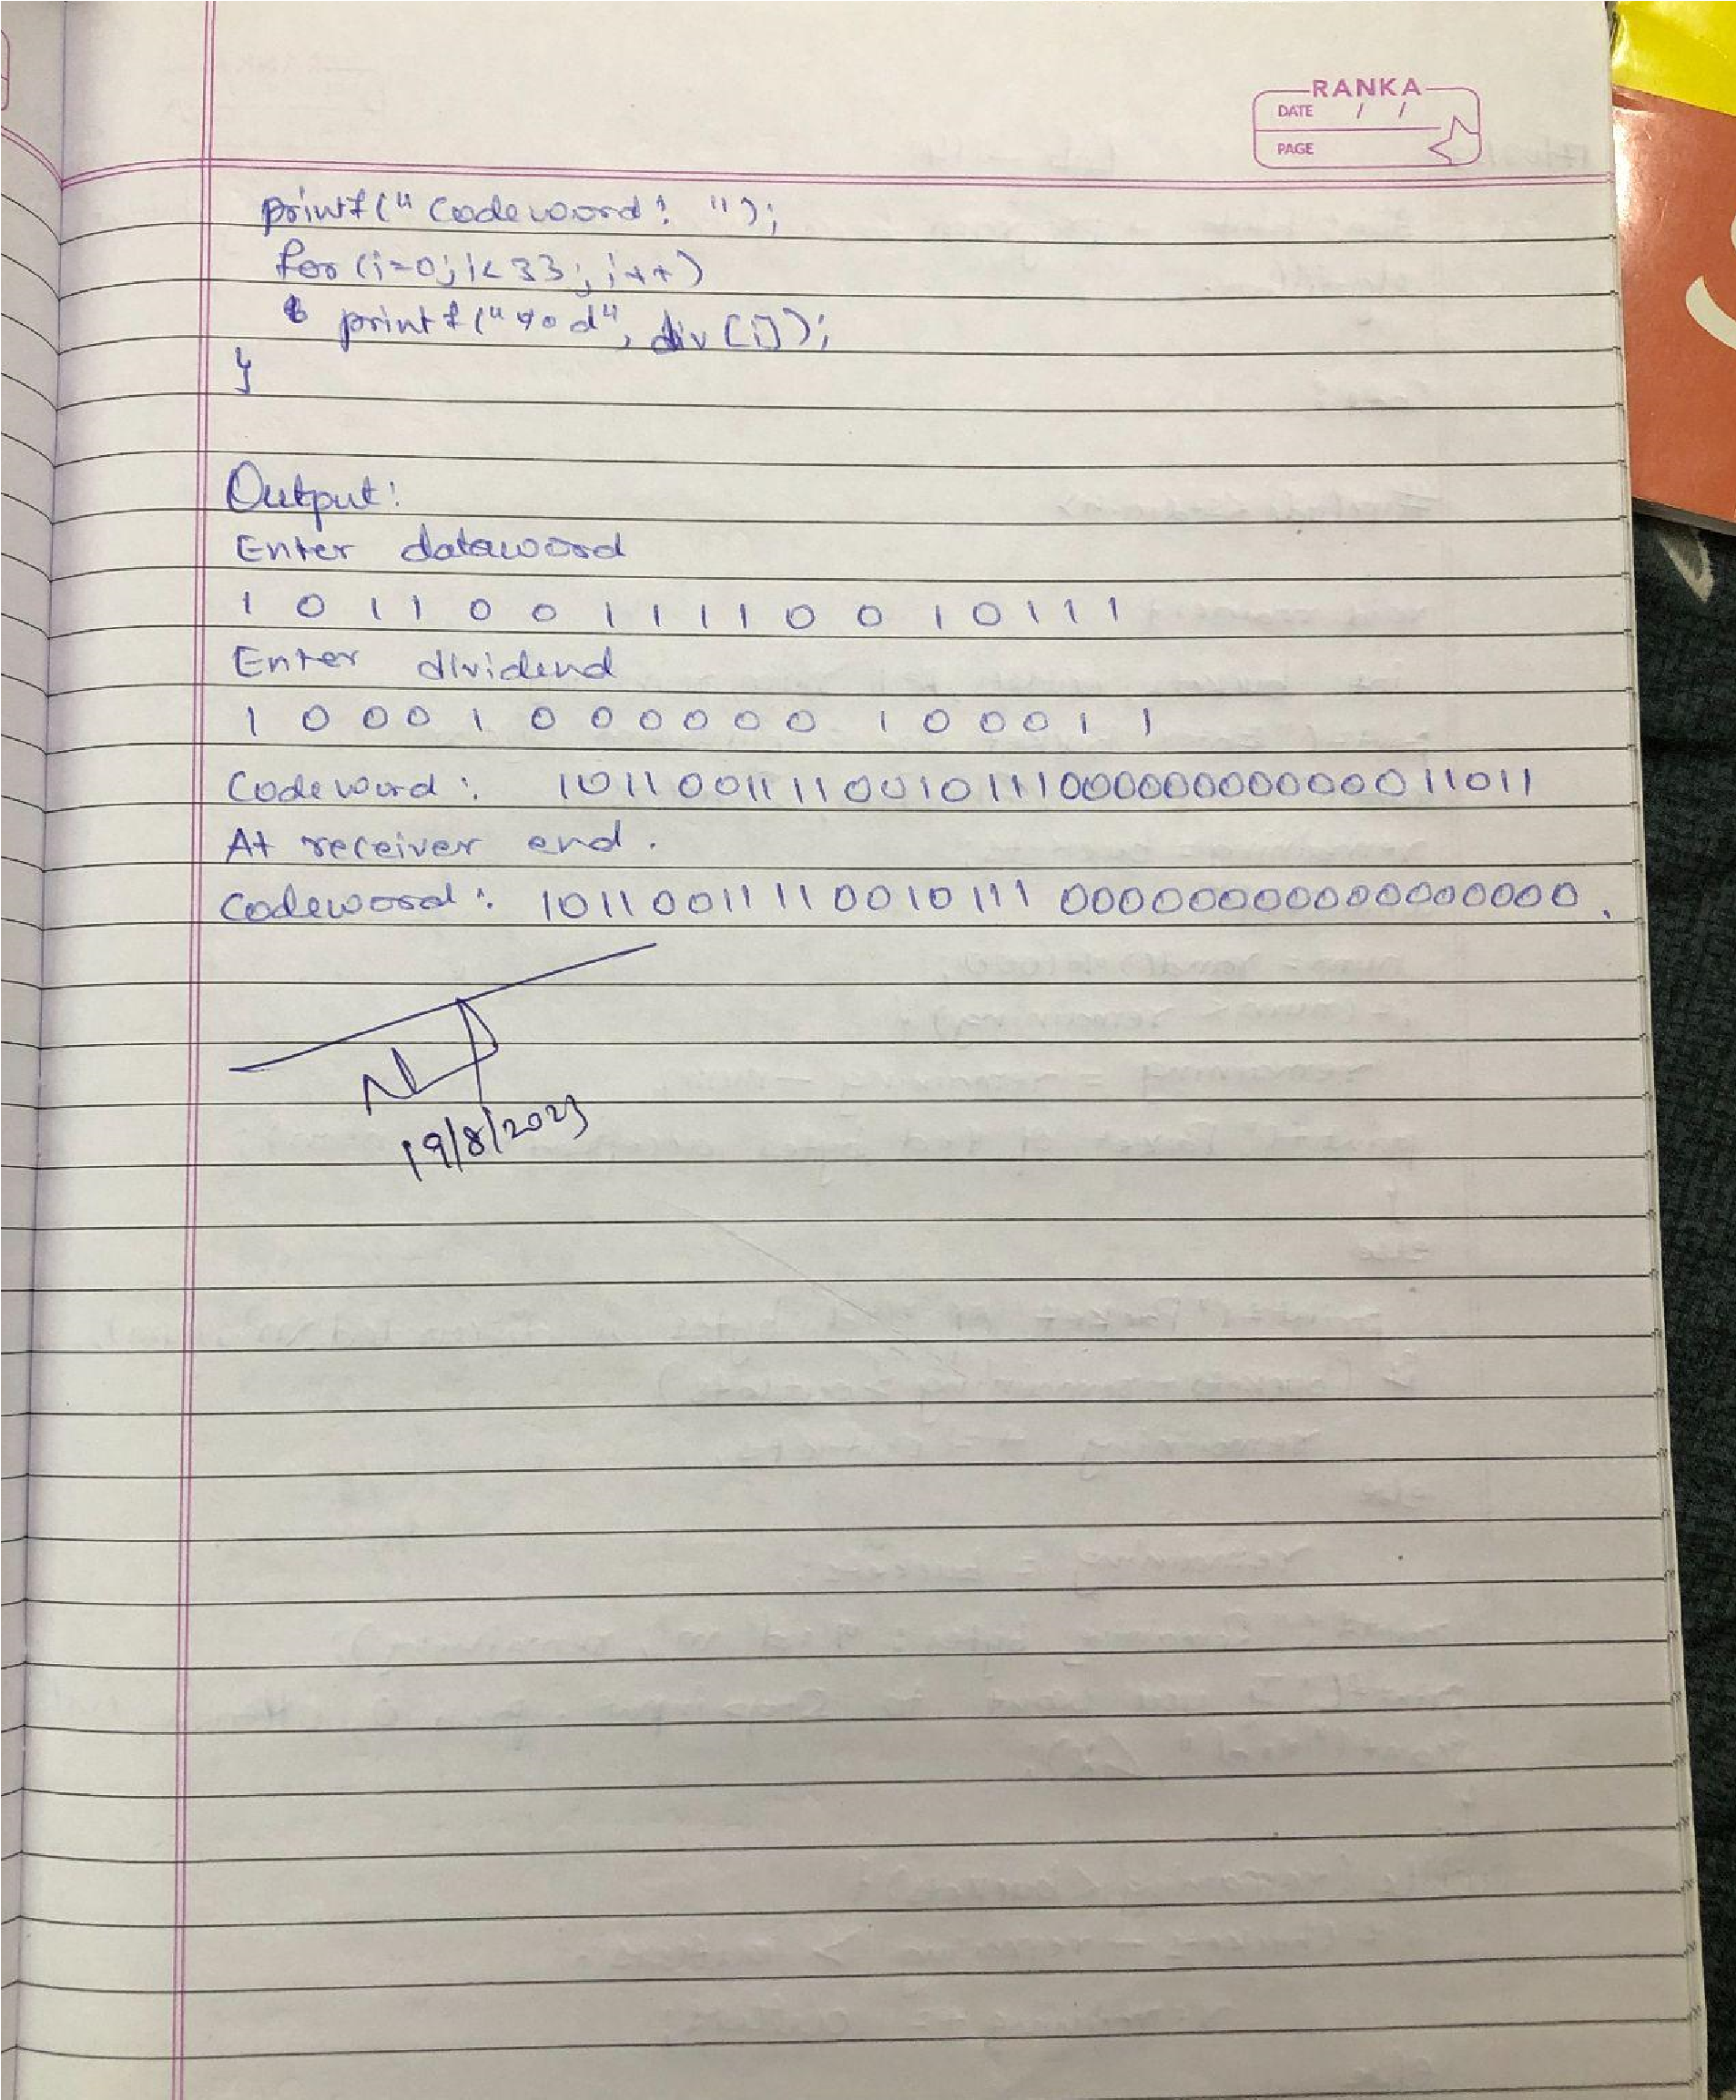 RANKA
DATE / /
PAGE
printf("Codeword: ");
for(i=0; i<33; i++)
printf("%d", div[i]);
}
Output:
Enter dataword
1 0 1 1 0 0 1 1 1 1 0 0 1 0 1 1 1
Enter dividend
1 0 0 0 1 0 0 0 0 0 0 1 0 0 0 1 1
Codeword: 10110011110010111000000000000011011
At receiver end.
Codeword: 10110011110010111 0000000000000000.
19/8/2023